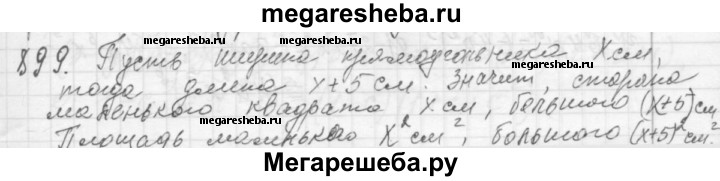 megaresheba.ru
899. Пусть ширина прямоугольника x см,
megaresheba.ru megaresheba.ru
тогда длина x + 5 см. Значит, сторона
маленького квадрата x см, большого (x+5) см
megaresheba.ru megaresheba.ru
Площадь маленького x² см², большого (x+5)² см².
Мегарешеба.ру